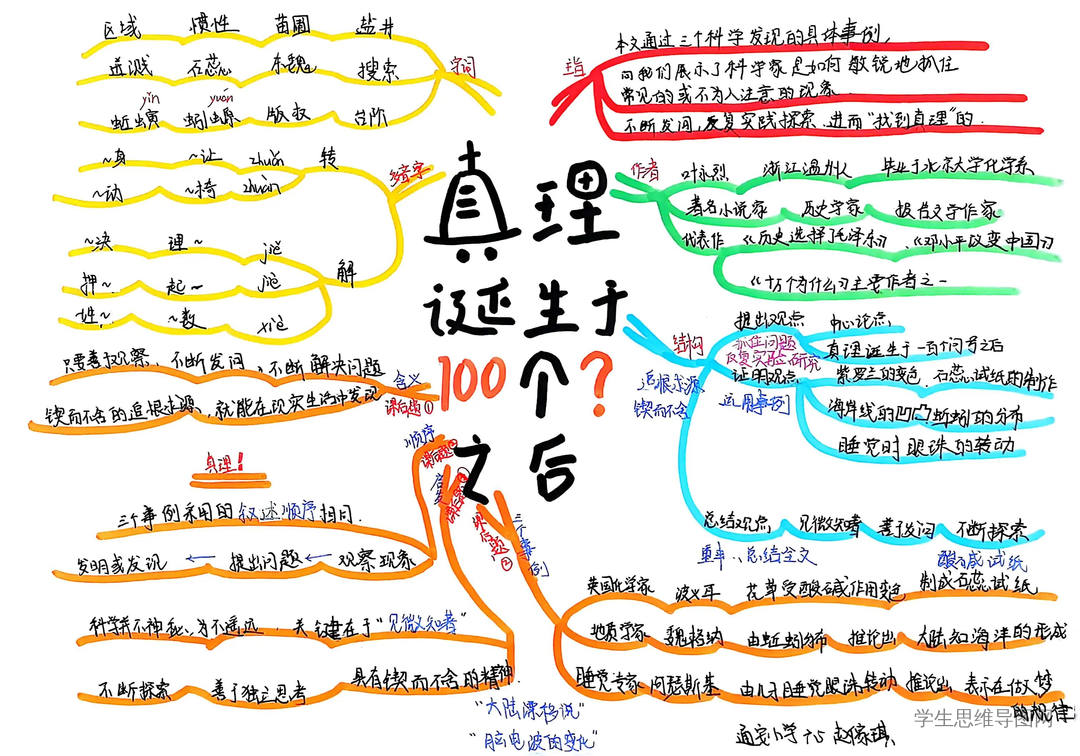 真理
诞生于
100个?
之后
字词
区域 惯性 苗圃 盐井
逆溅 石蕊 木魏 搜索
yǐn yuán
蚯蚓 蝾螈 版权 台阶
多音字
~身 ~让 zhuǎn 转
~动 ~椅 zhuàn
~决 理~ jiě 解
押~ 起~ jiè
姓~ ~数 xiè
含义
课后题①
只要善于观察,不断发问,不断解决问题
锲而不舍的追根求源,就能在现实生活中发现
真理!
顺序
课后题
三个事例采用的叙述顺序相同.
发明或发现 ← 提出问题 ← 观察现象
启发
课后题
科学并不神秘,亦不遥远 关键在于"见微知著"
不断探索 善于独立思考 具有锲而不舍的精神.
主旨
本文通过三个科学发现的具体事例,
向我们展示了科学家是如何敏锐地抓住
常见的或不为人注意的现象
不断发问,反复实践探索,进而"找到真理"的.
作者
叶永烈 浙江温州人 毕业于北京大学化学系
著名小说家 历史学家 报告文学作家
代表作《历史选择了毛泽东》、《邓小平改变中国》
《十万个为什么》主要作者之一
结构
追根求源
锲而不舍
提出观点 中心论点
真理诞生于一百个问号之后
抓住问题
反复实验、研究
证明观点
运用事例
紫罗兰的变色,石蕊试纸的制作
海岸线的凹凸 蚯蚓的分布
睡觉时眼珠的转动
总结观点 见微知著 善于发问 不断探索
重申、总结全文
酸碱试纸
三个事例
课后题②
英国化学家 波义耳 花草受酸碱作用变色 制成石蕊试纸
地质学家 魏格纳 由蚯蚓分布 推论出 大陆和海洋的形成
睡觉专家 阿瑟斯基 由儿子睡觉眼珠转动 推论出 表示在做梦
的规律
"大陆漂移说"
"脑电波的变化"
通宝小学 六 赵保琪
学生思维导图网